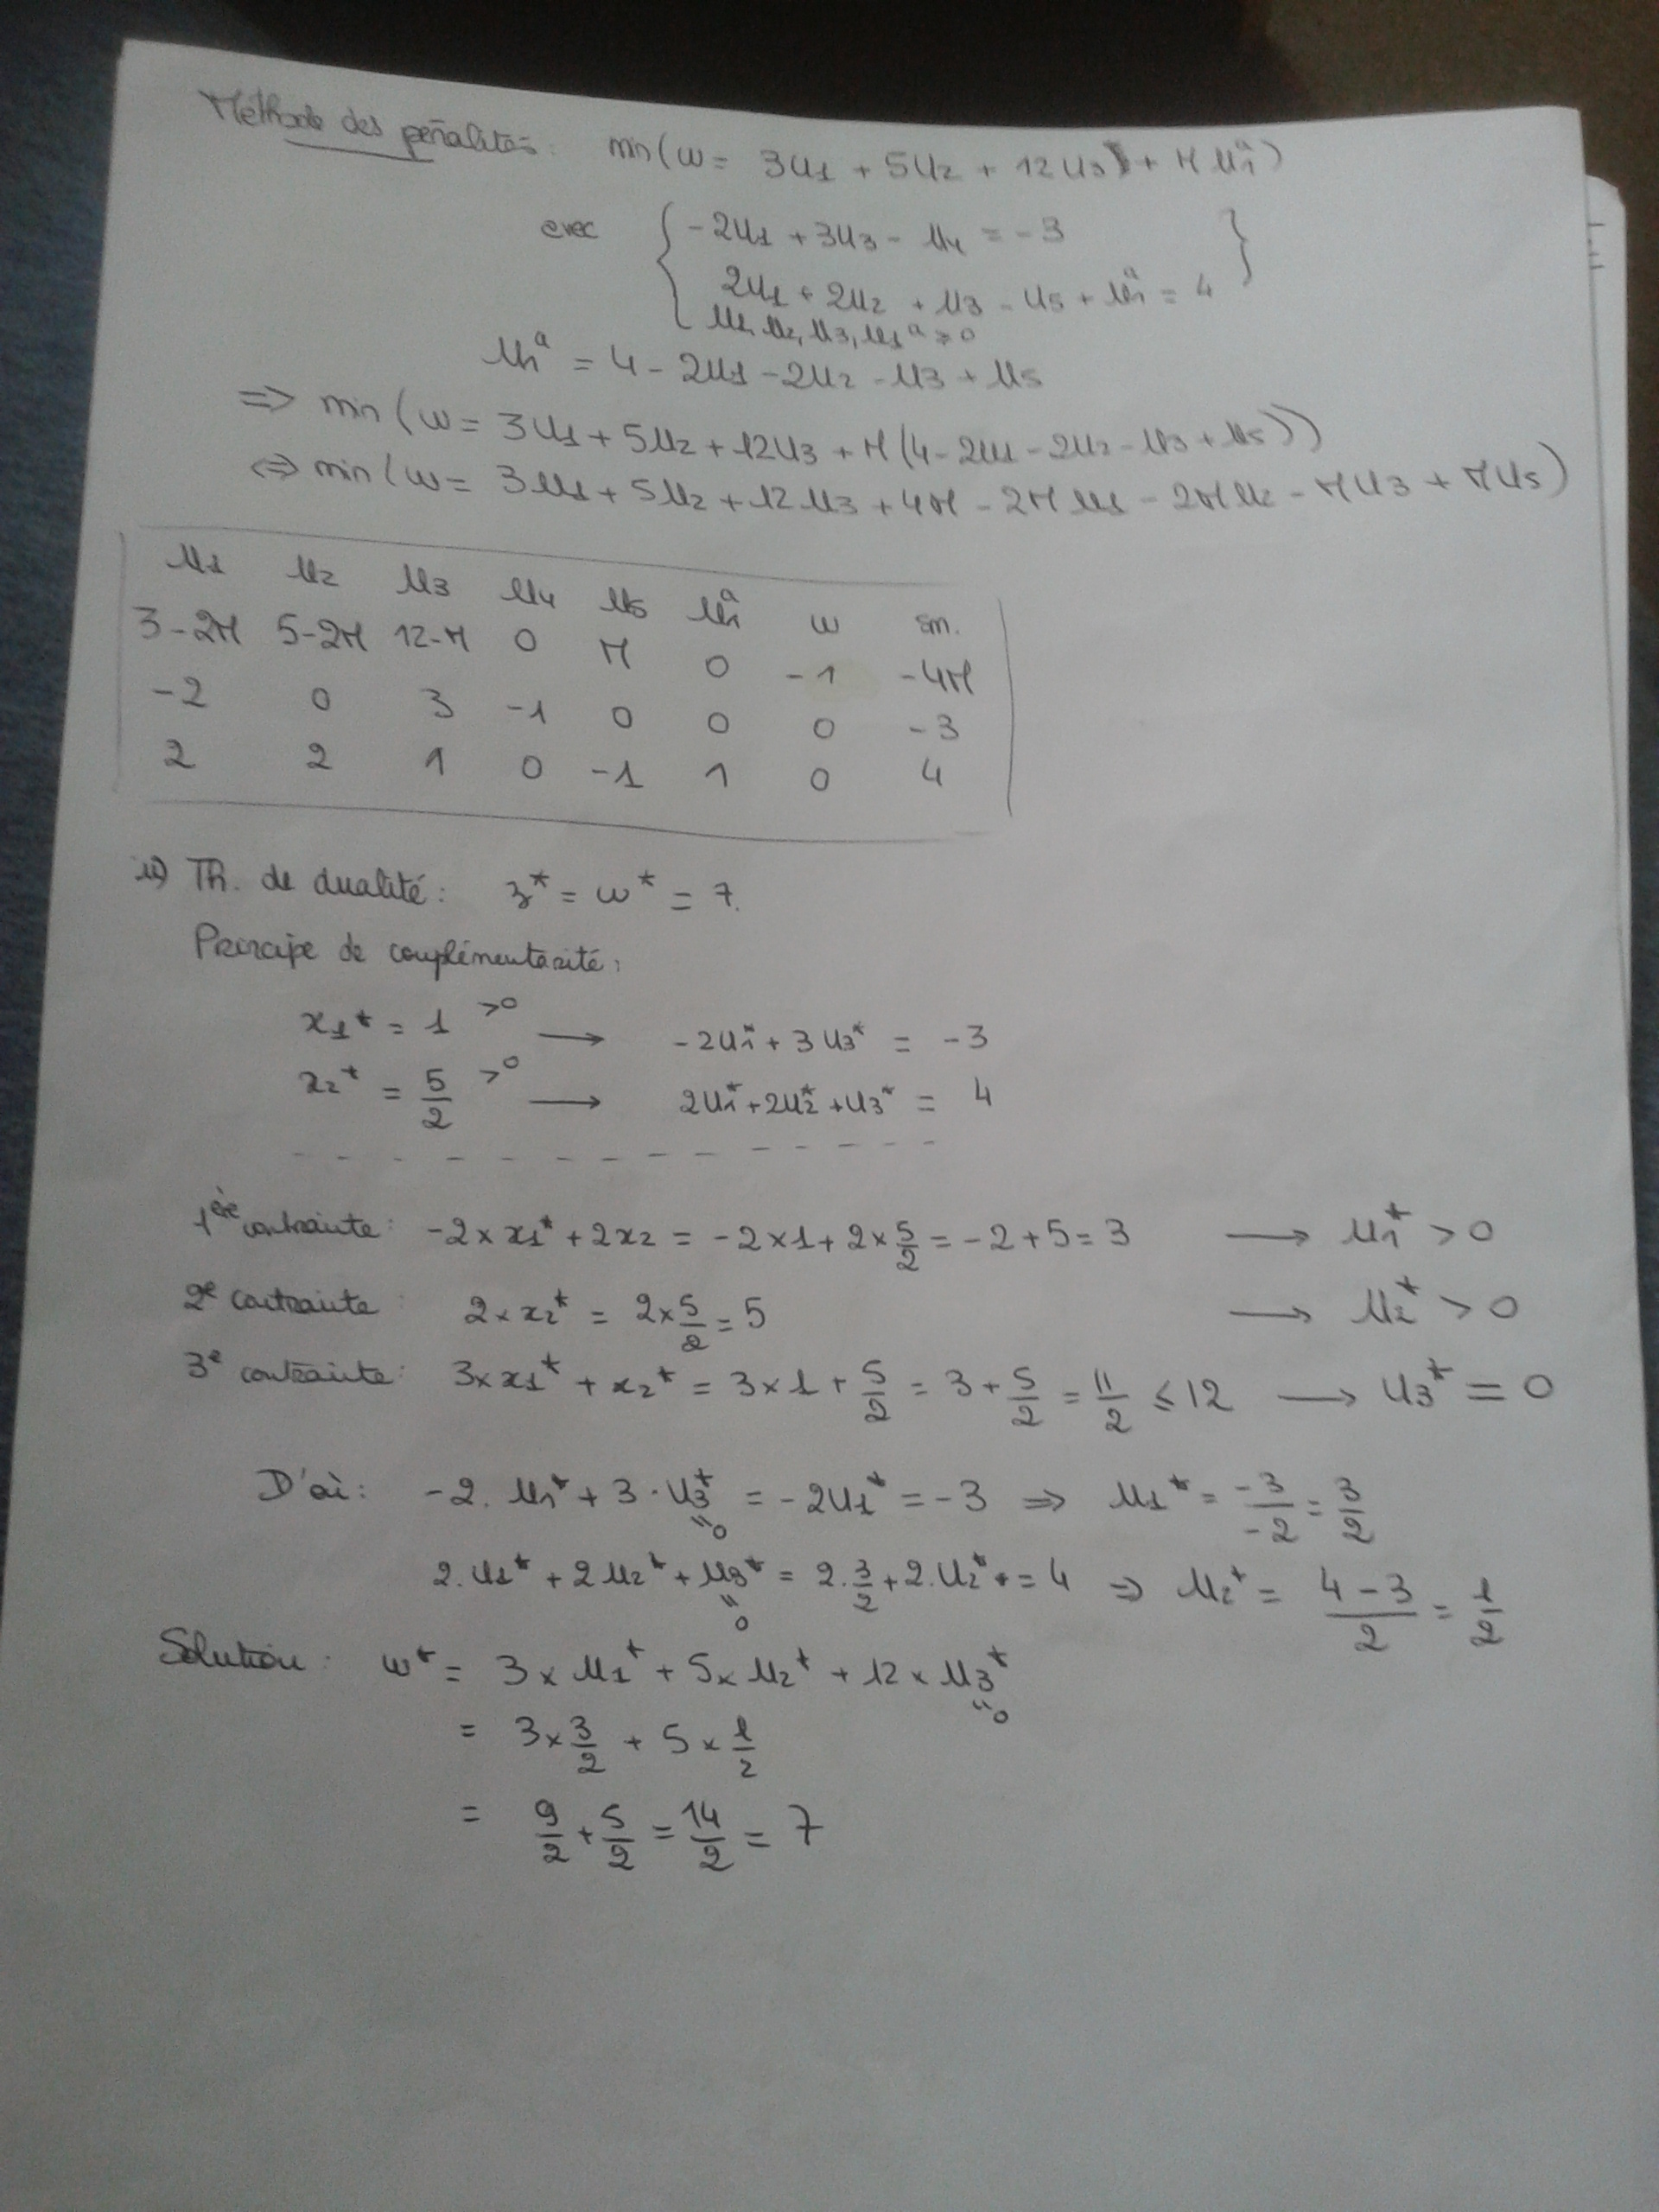 Méthode des pénalités : min(w = 3u₁ + 5u₂ + 12u₃ + M u₁ᵃ)
avec { -2u₁ + 3u₃ - u₄ = -3 }
2u₁ + 2u₂ + u₃ - u₅ + u₁ᵃ = 4
u₁, u₂, u₃, u₁ᵃ ≥ 0
u₁ᵃ = 4 - 2u₁ - 2u₂ - u₃ + u₅
=> min(w = 3u₁ + 5u₂ + 12u₃ + M(4 - 2u₁ - 2u₂ - u₃ + u₅))
<=> min(w = 3u₁ + 5u₂ + 12u₃ + 4M - 2Mu₁ - 2Mu₂ - Mu₃ + Mu₅)
u₁ u₂ u₃ u₄ u₅ u₁ᵃ w sm.
3-2M 5-2M 12-M 0 M 0 -1 -4M
-2 0 3 -1 0 0 0 -3
2 2 1 0 -1 1 0 4
Th. de dualité : z* = w* = 7.
Principe de complémentarité :
x₁* = 1 >0 → -2u₁* + 3u₃* = -3
x₂* = 5/2 >0 → 2u₁* + 2u₂* + u₃* = 4
1ère contrainte : -2 × x₁* + 2x₂ = -2×1 + 2×5/2 = -2+5 = 3 → u₁* > 0
2e contrainte : 2 × x₂* = 2×5/2 = 5 → u₂* > 0
3e contrainte : 3×x₁* + x₂* = 3×1 + 5/2 = 3 + 5/2 = 11/2 ≤ 12 → u₃* = 0
D'où : -2.u₁* + 3.u₃* = -2u₁* = -3 => u₁* = -3/-2 = 3/2
"0
2.u₁* + 2u₂* + u₃* = 2.3/2 + 2.u₂* = 4 => u₂* = 4-3/2 = 1/2
"0
Solution : w* = 3 × u₁* + 5 × u₂* + 12 × u₃*
"0
= 3×3/2 + 5×1/2
= 9/2 + 5/2 = 14/2 = 7